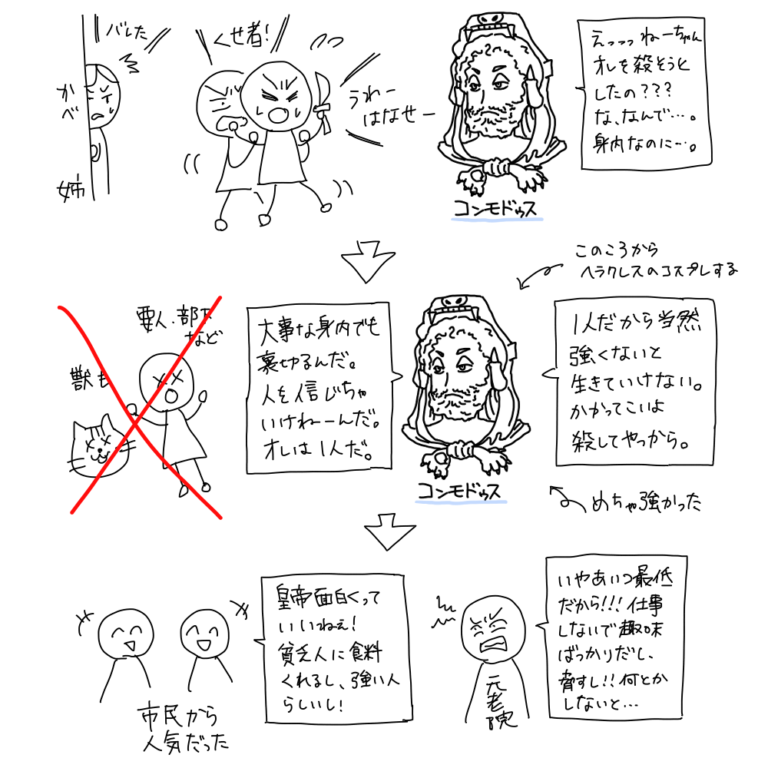 バレた
くせ者!
かべ
姉
うわー
はなせー
えっっっねーちゃん
オレを殺そうと
したの???
な、なんで…。
身内なのに…。
コンモドゥス
このころから
ヘラクレスのコスプレする
要人・部下
など
獣も
大事な身内でも
裏切るんだ。
人を信じちゃ
いけねーんだ。
オレは1人だ。
コンモドゥス
1人だから当然
強くないと
生きていけない。
かかってこいよ
殺してやっから。
めちゃ強かった
市民から
人気だった
皇帝面白くって
いいねぇ!
貧乏人に食料
くれるし、強い人
らしいし!
元老院
いやあいつ最低
だから!!!仕事
しないで趣味
ばっかりだし、
脅すし!!何とか
しないと…